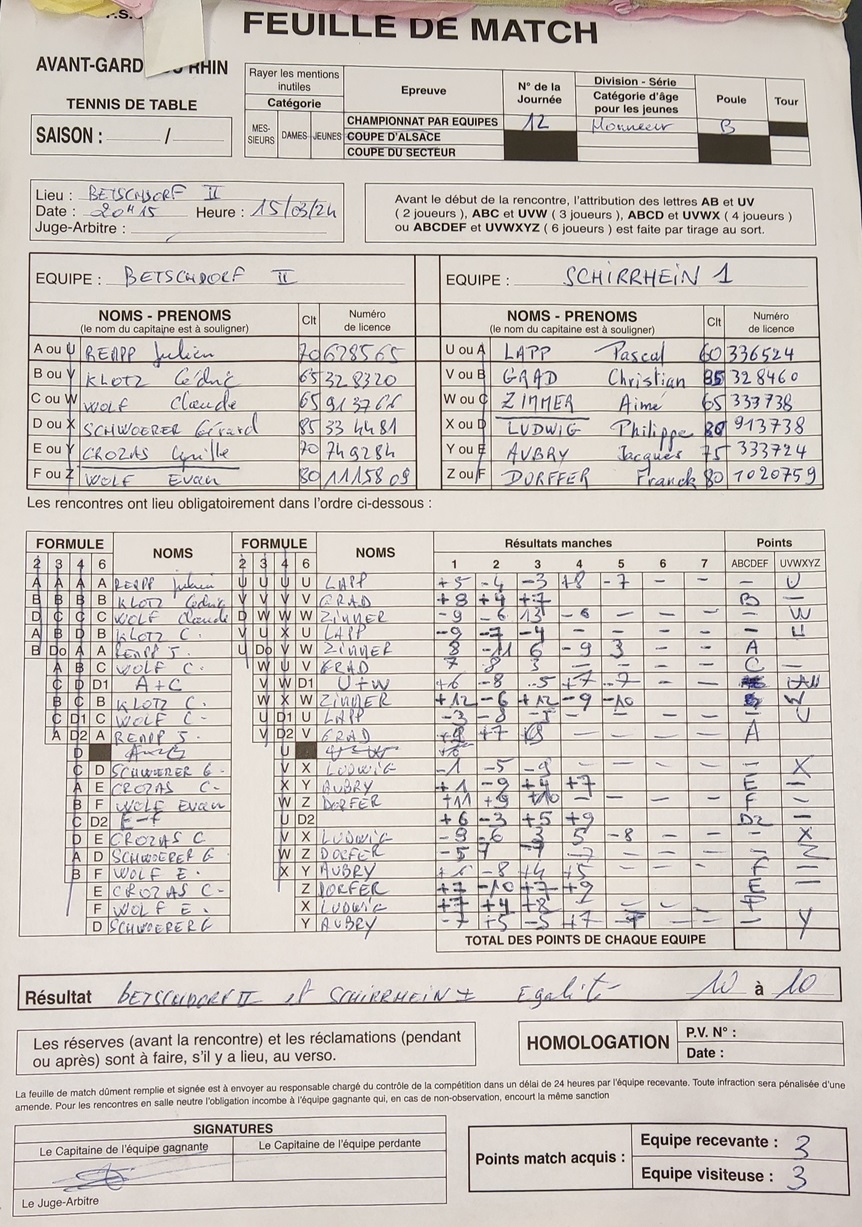 FEUILLE DE MATCH
AVANT-GARD DU RHIN
TENNIS DE TABLE
SAISON : /
Rayer les mentions inutiles
Catégorie
MES-SIEURS DAMES JEUNES
Epreuve
CHAMPIONNAT PAR EQUIPES
COUPE D'ALSACE
COUPE DU SECTEUR
N° de la Journée
12
Division - Série
Catégorie d'âge pour les jeunes
Honneur
Poule
B
Tour
Lieu : BETSCHDORF II
Date : 20H15 Heure : 15/03/24
Juge-Arbitre :
Avant le début de la rencontre, l'attribution des lettres AB et UV
( 2 joueurs ), ABC et UVW ( 3 joueurs ), ABCD et UVWX ( 4 joueurs )
ou ABCDEF et UVWXYZ ( 6 joueurs ) est faite par tirage au sort.
EQUIPE : BETSCHDORF II
EQUIPE : SCHIRRHEIN 1
NOMS - PRENOMS Clt Numéro de licence
(le nom du capitaine est à souligner)
NOMS - PRENOMS Clt Numéro de licence
(le nom du capitaine est à souligner)
A ou U REAPP Julien 70 628565
U ou A LAPP Pascal 60 336524
B ou V KLOTZ Cédric 65 328320
V ou B GRAD Christian 85 328460
C ou W WOLF Claude 65 913766
W ou C ZIMMER Aimé 65 333738
D ou X SCHWOERER Gérard 85 334481
X ou D LUDWIG Philippe 80 913738
E ou Y CROZAS Cyrille 70 749284
Y ou E AUBRY Jacques 75 333724
F ou Z WOLF Evan 80 1115809
Z ou F DORFFER Franck 80 1020759
Les rencontres ont lieu obligatoirement dans l'ordre ci-dessous :
FORMULE NOMS FORMULE NOMS Résultats manches Points
2 3 4 6 2 3 4 6 1 2 3 4 5 6 7 ABCDEF UVWXYZ
A A A A REAPP Julien U U U U LAPP +5 -4 -3 +8 -7 - - - U
B B B B KLOTZ Cédric V V V V GRAD +8 +4 +7 B -
D C C C WOLF Claude D W W W ZIMMER -9 -6 13 -6 - - - - W
A B D B KLOTZ C. V U X U LAPP -9 -7 -4 - - - - - U
B Do A A REAPP J. U Do V W ZIMMER 8 -11 6 -9 3 - - A -
A B C WOLF C. W U V GRAD 7 8 3 - - - - C -
C D D1 A+C V W D1 U+W +6 -8 -5 +7 -7 - -
B C B KLOTZ C. W X W ZIMMER +12 -6 +12 -9 -10 W
C D1 C WOLF C. U D1 U LAPP -3 -8 - - - - - U
A D2 A REAPP J. V D2 V GRAD +7 - - - - A
D U
C D SCHWERER G. V X LUDWIG -1 -5 -9 - - - - - X
A E CROZAS C. X Y AUBRY +1 -9 +4 +7 E -
B F WOLF Evan W Z DORFER +11 +9 +10 - - - - F -
C D2 E-F U D2 +6 -3 +5 +9 D2 -
D E CROZAS C V X LUDWIG -9 -6 3 5 -8 - - - X
A D SCHWERER G W Z DORFER -5 7 -
B F WOLF E. X Y AUBRY -8 +4 +5 - - - F -
E CROZAS C- Z DORFER +7 -10 +7 +9 E -
F WOLF E. X LUDWIG +7 +4 +8 - - - - F -
D SCHWERER G Y AUBRY -7 +5 -5 +7 - - - Y
TOTAL DES POINTS DE CHAQUE EQUIPE
Résultat BETSCHDORF II et SCHIRRHEIN 1 Egalité 10 à 10
Les réserves (avant la rencontre) et les réclamations (pendant
ou après) sont à faire, s'il y a lieu, au verso.
HOMOLOGATION
P.V. N° :
Date :
La feuille de match dûment remplie et signée est à envoyer au responsable chargé du contrôle de la compétition dans un délai de 24 heures par l'équipe recevante. Toute infraction sera pénalisée d'une
amende. Pour les rencontres en salle neutre l'obligation incombe à l'équipe gagnante qui, en cas de non-observation, encourt la même sanction
SIGNATURES
Le Capitaine de l'équipe gagnante Le Capitaine de l'équipe perdante
Le Juge-Arbitre
Points match acquis :
Equipe recevante : 3
Equipe visiteuse : 3